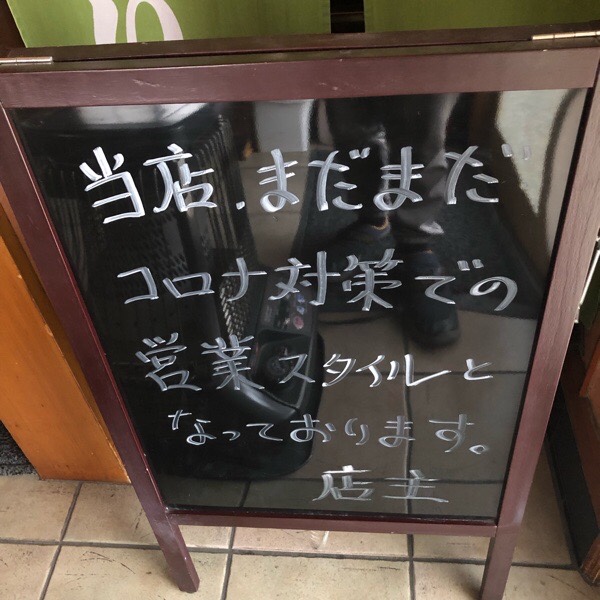 当店、まだまだ
コロナ対策での
営業スタイルと
なっております。
店主